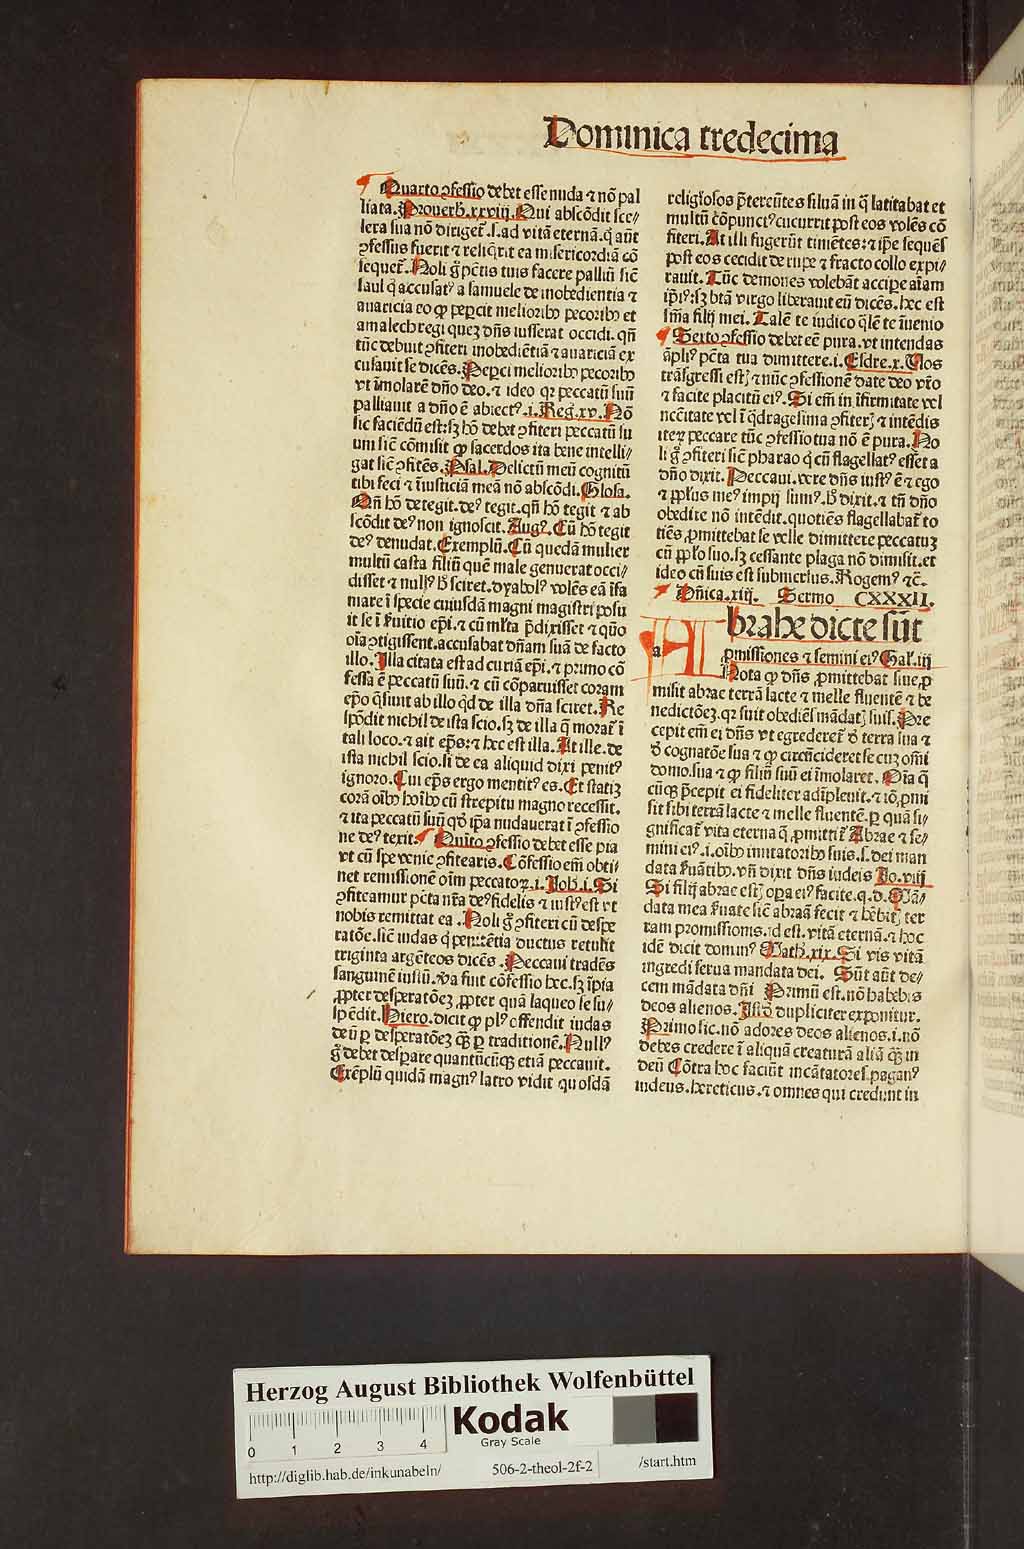 Dominica tredecima
Quarto ꝯfessio debet esse nuda ⁊ nō pal
liata. Prouerb̄. xxviij. Qui abscōdit sce/
lera sua nō diriget᷑. s. ad vitā eternā. q̇ aūt
ꝯfessus fuerit ⁊ reliq̄rit ea misericordiā cō
sequet᷑. Noli g̊ pctīs tuis facere palliū sic̄
saul q̇ accusat᷒ a samuele de inobedientia ⁊
auaricia eo ꝙ peꝑcit meliorib᷒ pecorib᷒ et
amalech regi quez dn̄s iusserat occidi. qn̄
tūc debuit ꝯfiteri inobediētiā ⁊ auariciā ex
cusauit se dicēs. Peperci meliorib᷒ pecorib᷒
vt īmolarē dn̄o deo. ⁊ ideo qꝛ peccatū suū
palliauit a dn̄o ē abiect᷒. i. Reḡ. xv. Nō
sic faciēdū est: sꝫ hō debet ꝯfiteri peccatū su
um sic̄ cōmisit ꝙ sacerdos ita bene intelli/
gat sic̄ ꝯfitēs. Psal. Delictū meū cognitū
tibi feci ⁊ īiusticiā meā nō abscōdi. Glosa.
Qn̄ hō detegit. de᷒ tegit. qn̄ hō tegit ⁊ ab
scōdit de᷒ non ignoscit. Aug᷒. Cū hō tegit
de᷒ denudat. Exemplū. Cū quedā mulier
multū casta filiū quē male genuerat occi/
disset ⁊ null᷒ h̄ sciret. dyabol᷒ volēs eā īfa
mare ī specie cuiusdā magni magistri posu
it se ī ẜuitio epī. ⁊ cū ml̄ta p̄dixisset ⁊ q̄uo
oīa ꝯtigissent. accusabat dn̄am suā de facto
illo. Illa citata est ad curiā epī. ⁊ primo cō
fessa ē peccatū suū. ⁊ cū cōparuisset coram
ep̄o q̄siuit ab illo qd̓ de illa dn̄a sciret. Re
spōdit nichil de ista scio. sꝫ de illa q̄ morat᷑ ī
tali loco. ⁊ ait ep̄s: ⁊ hec est illa. At ille. de
ista nichil scio. si de ea aliquid dixi penit᷒
ignoro. Cui ep̄s ergo mentit᷒ es. Et statiꝫ
corā oīb᷒ hoīb᷒ cū strepitu magno recessit.
⁊ ita peccatū suū qd̓ ip̄a nudauerat ī ꝯfessio
ne de᷒ texit. Quīto ꝯfessio debet esse pia
vt cū spe venie ꝯfitearis. Cōfessio em̄ obti/
net remissionē oīm peccatoꝝ. i. Joh̄. i. Si
ꝯfiteamur pctā nrā de᷒ fidelis ⁊ iust᷒ est vt
nobis remittat ea. Noli g̊ ꝯfiteri cū despe
ratōe. sic̄ iudas q̇ penitētia ductus retulit
triginta argēteos dicēs. Peccaui tradēs
sanguinē iustū. Ua fuit cōfessio hec. sꝫ īpia
ꝓpter desperatōeꝫ ꝓpter quā laqueo se su/
spēdit. Hiero. dicit ꝙ pl᷒ offendit iudas
deū ꝑ desperatōeꝫ qꝫ ꝑ traditionē. Null᷒
g̊ debet desperare quantūcūqꝫ etiā peccauit.
Exēplū quidā magn᷒ latro vidit quosdā
religiosos p̄tereūtes siluā in q̄ latitabat et
multū cōpunct᷒ cucurrit post eos volēs cō
fiteri. At illi fugerūt timētes: ⁊ ip̄e sequēs
post eos cecidit de rupe ⁊ fracto collo expi/
rauit. Tūc demones volebāt accipe aīam
ip̄i᷒: sꝫ btā virgo liberauit eū dicēs. hec est
sīa filij mei. Talē te iudico q̄lē te īuenio
Sexto ꝯfessio debet eē pura. vt intendas
āpli᷒ pctā tua dimittere. i. Esdre. x. Uos
trāsgressi estꝭ ⁊ nūc ꝯfessionē date deo vr̄o
⁊ facite placitū ei᷒. Si em̄ in īfirmitate vel
necēitate vel ī q̄dragesima ꝯfiterꝭ ⁊ intēdis
iteꝝ peccare tūc ꝯfessio tua nō ē pura. No
li g̊ ꝯfiteri sic̄ pharao q̇ cū flagellat᷒ esset a
dn̄o dixit. Peccaui. vere dn̄s iust᷒ ē ⁊ ego
⁊ pp̄lus me᷒ impij sum᷒. h̄ dixit. ⁊ tn̄ dn̄o
obedire nō intēdit. quotiēs flagellabat᷑ to
tiēs ꝓmittebat se velle dimittere peccatuꝫ
cū pp̄lo suo. sꝫ cessante plaga nō dimisit. et
ideo cū suis est submersus. Rogem᷒ ⁊c̄.
Dn̄ica. xiij. Sermo CXXXII.
Abrahe dicte sūt
ꝓmissiones ⁊ semini ei᷒ Gal᷑. iij
Nota ꝙ dn̄s ꝓmittebat siue ꝓ
misit abrae terrā lacte ⁊ melle fluentē ⁊ be
nedictōeꝫ. qꝛ fuit obediēs mādatꝭ suis. Pre
cepit em̄ ei dn̄s vt egrederet᷑ d̓ terra sua ⁊
d̓ cognatōe sua ⁊ ꝙ circūcideret se cuꝫ om̄i
domo. sua ⁊ ꝙ filiū suū ei īmolaret. Oīa q̄
cūqꝫ p̄cepit ei fideliter adīpleuit. ⁊ iō ꝓmi
sit sibi terrā lacte ⁊ melle fluentē. ꝑ quā si/
gnificat᷑ vita eterna q̄ ꝓmittit᷑ Abrae ⁊ se/
mini ei᷒. i. oīb᷒ imitatorib᷒ suis. s. dei man
data ẜuātib᷒. vn̄ dixit dn̄s iudeis Jo. viij
Si filij abrae estꝭ oꝑa ei᷒ facite. q. d. Mā/
data mea ẜuate sic̄ abraā fecit ⁊ hēbitꝭ ter
ram promissionis. id est. vitā eternā. ⁊ hoc
idē dicit domin᷒ Math̄. xix. Si vis vitā
ingredi serua mandata dei. Sūt aūt de/
cem mādata dn̄i Primū est. nō habebis
deos alienos. Istd̓ dupliciter exponitur.
Primo sic. nō adores deos alienos. i. nō
debes credere ī aliquā creaturā aliā qꝫ in
deū Cōtra hoc faciūt incātatores. pagan᷒
iudeus. hereticus. ⁊ omnes qui credunt in
Herzog August Bibliothek Wolfenbüttel
0 1 2 3 4
Kodak
Gray Scale
http://diglib.hab.de/inkunabeln/ 506-2-theol-2f-2 /start.htm